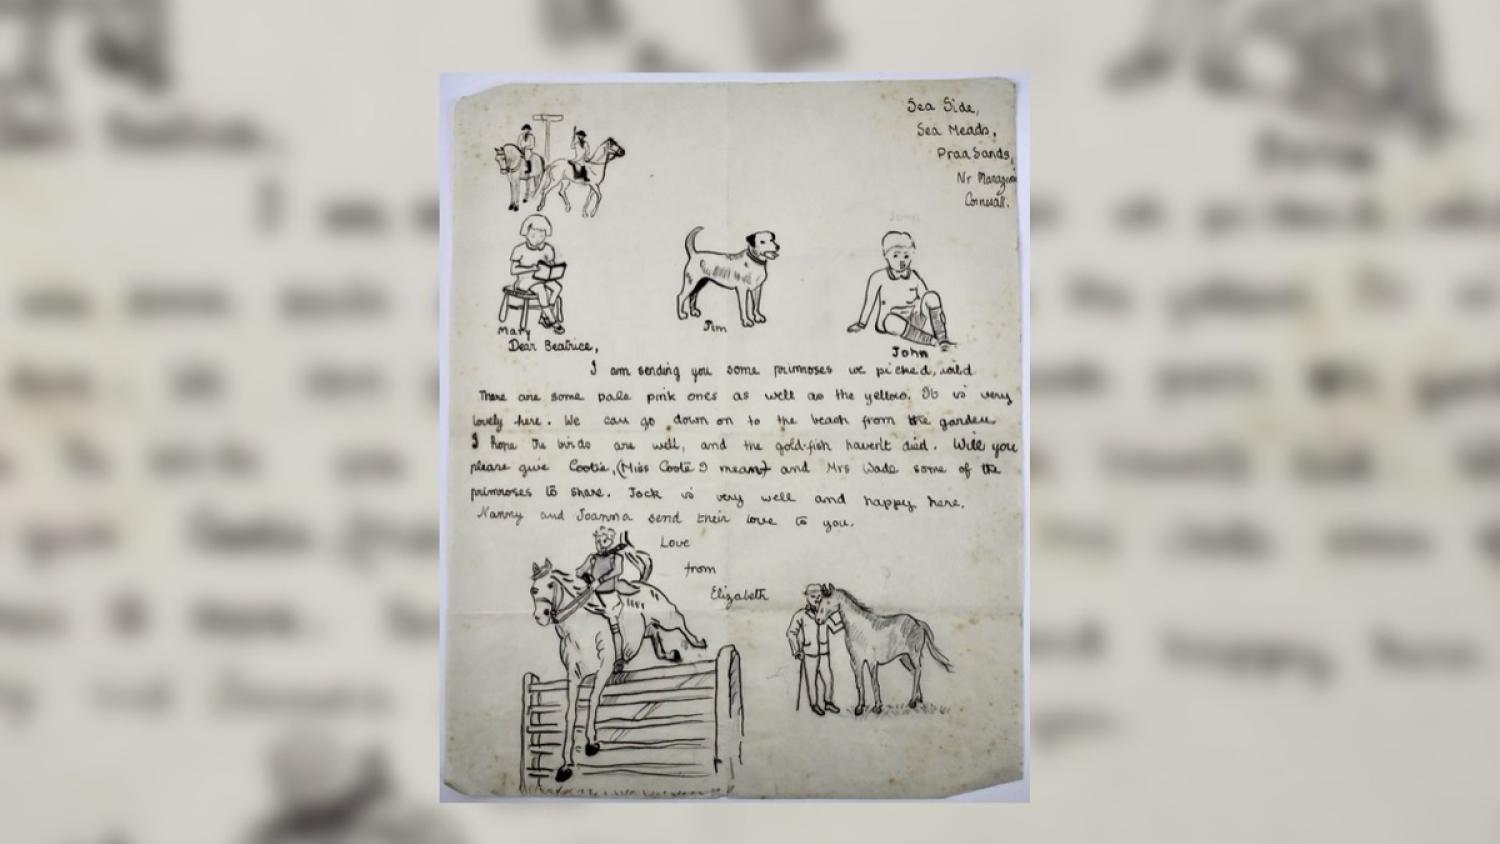 Sea Side,
Sea Meads,
Praa Sands,
Nr
Cornwall.
Mary
Jim
John
Dear Beatrice,
I am sending you some primroses we picked, wild
There are some pale pink ones as well as the yellow. It is very
lovely here. We can go down on to the beach from the garden
I hope the birds are well, and the gold-fish haven't died. Will you
please give Cootie, (Miss Coote I mean) and Mrs Wade some of the
primroses to share. Jock is very well and happy here.
Nanny and Joanna send their love to you.
Love
from
Elizabeth